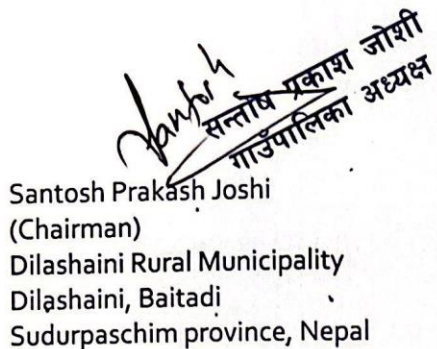 Santosh
सन्तोष प्रकाश जोशी
गाउँपालिका अध्यक्ष
Santosh Prakash Joshi
(Chairman)
Dilashaini Rural Municipality
Dilashaini, Baitadi
Sudurpaschim province, Nepal